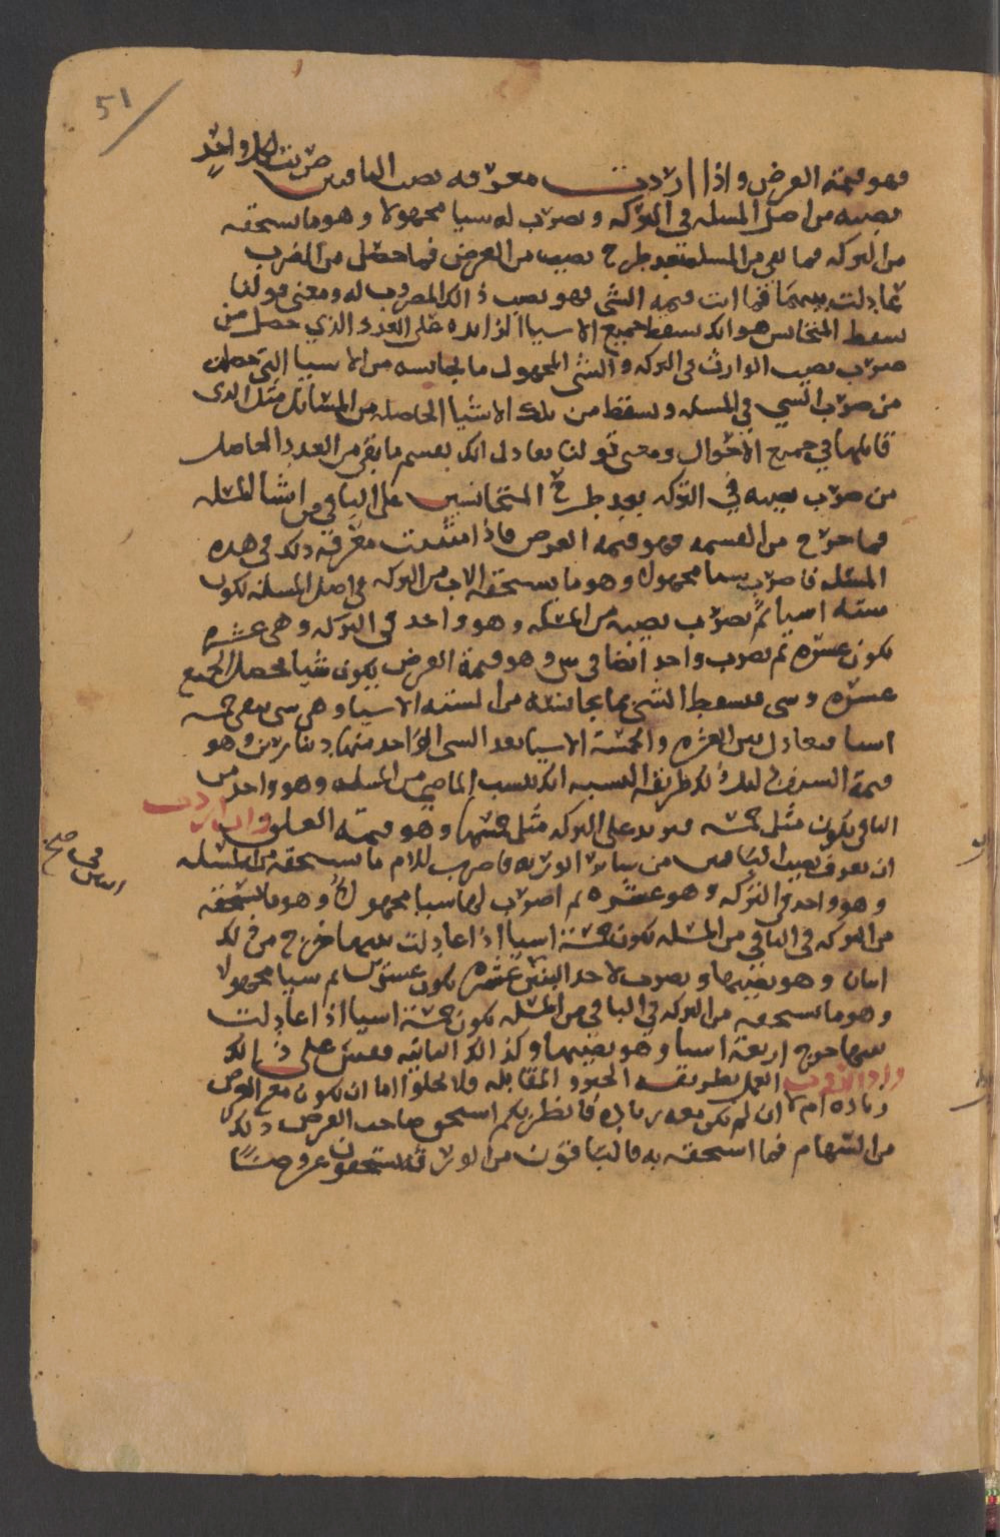 51
فهو قيمة العرض واذا اردت معرفه نصيب الباقين ضربت لكل واحد
نصيبه من اصل المسله في التركه وتضرب له سيا مجهولا وهو ما يستحقه
من التركه فما بقي من المسلة بعد طرح نصيب من العرض فما حصل من الضرب
عادلت بينهما فما اتت قيمه الشي فهو نصيب ذالك المضروب له ومعنى قولنا
سقط المتجانس هو انك تسقط جميع الاسيا الزايده على العدد الذي حصل من
ضرب نصيب الوارث في التركه والشي المجهول ما يجانسه من الاسيا التي حصلت
من ضرب الشي في المسله وتسقط من تلك الاشيا الحاصله من المسايل مثل الذي
قابلها في جميع الاحوال ومعنى قولنا تعادل انك تقسم ما بقي من العدد الحاصل
من ضرب نصيبه في التركه بعد طرح المتجانسين على الباقي من اشيا المسله
فما خرج من القسمه فهو قيمة العرض فاذا اردت معرفه ذلك في هذه
المسله فاضرب سيا مجهولا وهو ما يستحقه الاب من التركه في اصل المسله تكون
سته اسيا ثم تضرب نصيبه من المسله وهو واحد في التركه وهي عشره
تكون عشره ثم تضرب واحد ايضا في سي وهو قيمة العرض يكون شيا يحصل الجميع
عشره وسي فتسقط الشي بما يجانسه من السته الاسيا وهي سي يبقى خمسه
اسيا فتعادل بين العشره والخمسة الاسيا تعد السي الواحد منها دينارين وهو
قيمة السدس وكذلك طريقة النسبه انك تنسب الماضي من المسله وهو واحد من
الباقي يكون مثل خمسه فتزيد على التركه مثل خمسها وهو قيمة العلق وان اردت
ان تعرف نصيب الباقين من سائر الورثه فاضرب للام ما تستحقه من المسله
وهو واحد في التركه وهو عشره ثم اضرب لها سيا مجهولا وهو ما تستحقه
من التركه في الباقي من المسله تكون خمسة اسيا اذا عادلت بينهما خرج من ذلك
اثنان وهو نصيبها وتضرب لاحد البنتين عشره تكون عشرين ثم سيا مجهولا
وهو ما تستحقه من التركه في الباقي من المسله تكون خمسة اسيا اذا عادلت
بينهما خرج اربعة اسيا وهو نصيبها وكذالك الثانيه فقس على ذالك
واذا اردت العمل بطريقه الجبر والمقابله فلا يخلوا اما ان يكون مع العرض
زياده ام لا ان لم يكن معه زيادة فانظر بكم استحق صاحب العرض ذلك
من السهام فما استحقه به فالباقون من الورثة يستحقون عروضا
صح